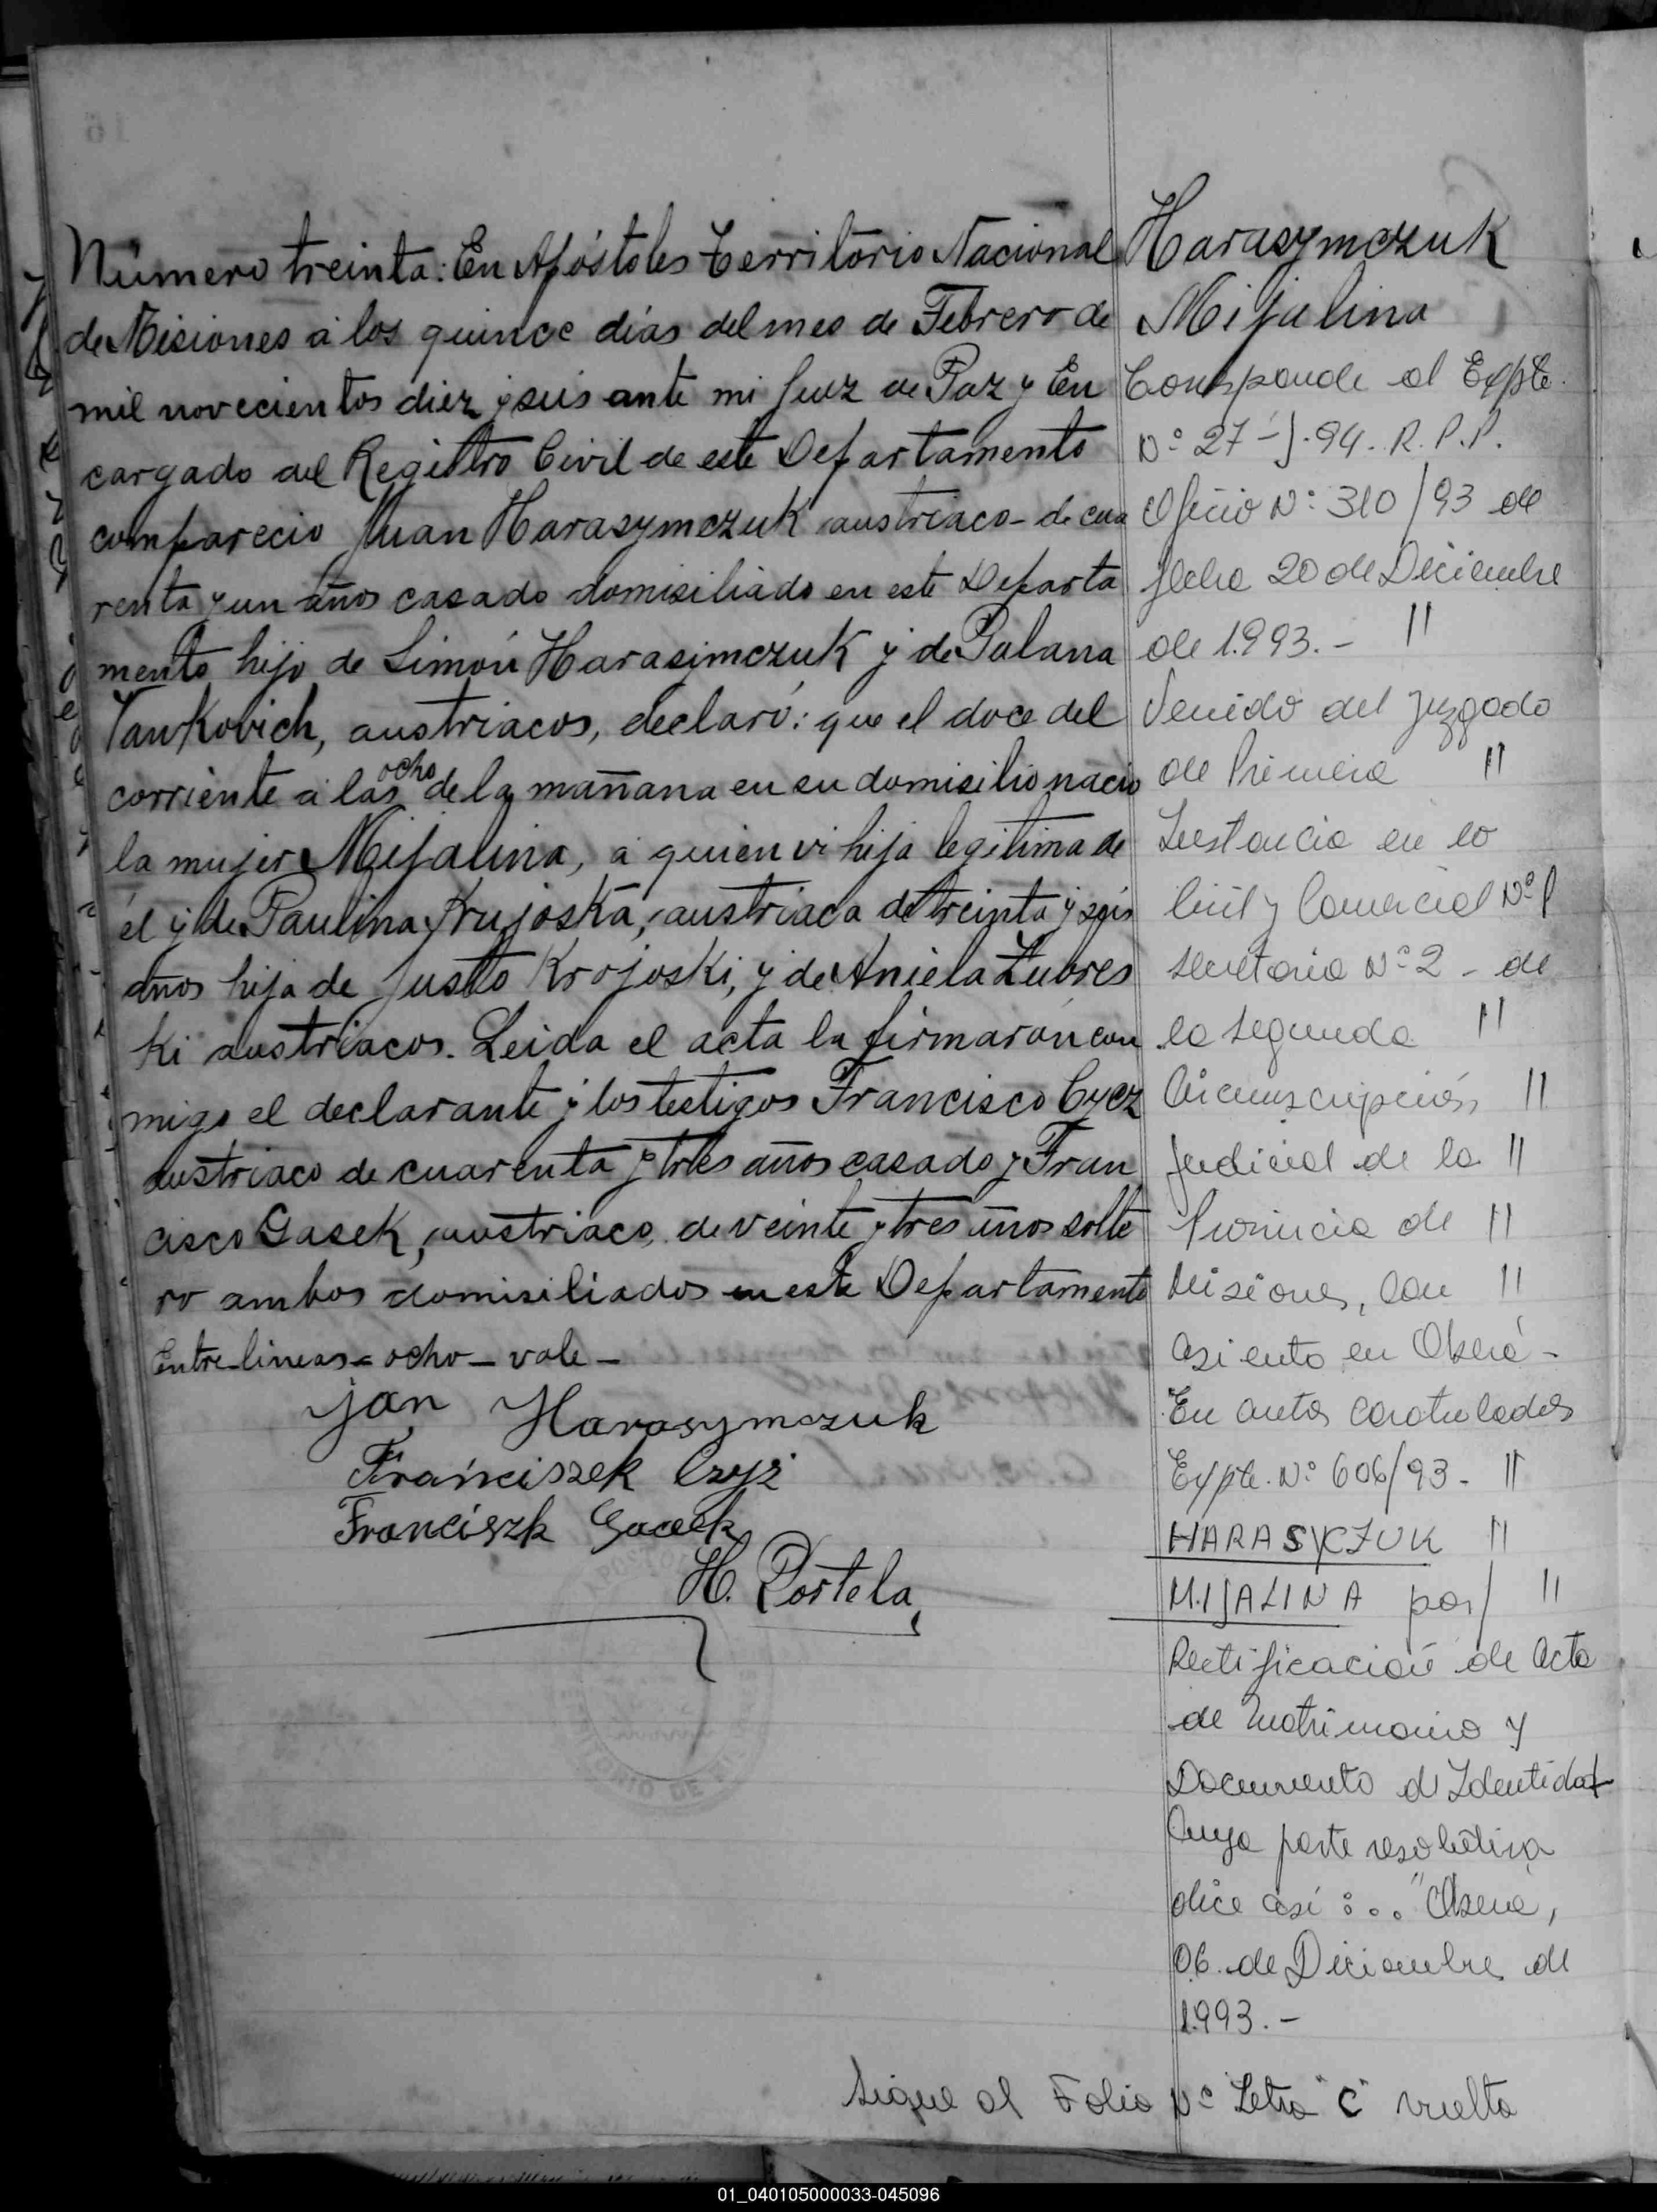 Número treinta: En Apóstoles Territorio Nacional
de Misiones á los quince días del mes de Febrero de
mil novecientos diez y seis ante mi Juez de Paz y En
cargado del Registro Civil de este Departamento
comparecio Juan Harasymczuk austriaco - de cua
renta y un años casado domisiliado en este Departa
mento hijo de Simón Harasimczuk y de Palana
Yankovich, austriacos, declaró: que el doce del
corriente á las ocho de la mañana en su domisilio nacio
la mujer Mijalina, á quien vi hija legitima de
él y de Paulina Krujoska, austriaca de treinta y seis
años hija de Justo Krojoski, y de Aniela Zubres
ki austriacos. Leida el acta la firmarón con
migo el declarante y los testigos Francisco Cycz
austriaco de cuarenta y tres años casado y Fran
cisco Gasek, austriaco, de veinte y tres años solte
ro ambos domisiliados en este Departamento
Entre-lineas = ocho - vale -
Jan Harasymczuk
Franciszek Czyż
Franciszk Gacek
H. Portela
Harasymczuk
Mijalina
Corresponde al Expte.
Nº 27-J-94. R.P.P.
Oficio Nº 310/93 de
fecha 20 de Diciembre
de 1.993.- "
Venido del Juzgado
de Primera "
Instancia en lo
Civil y Comercial Nº 1
secretaria Nº 2 - de
la segunda "
Circunscripción "
Judicial de la "
Provincia de "
Misiones, con "
asiento en Oberá -
En autos caratulados
Expte. Nº 606/93 - "
HARASYCZUK "
MIJALINA por/ "
Rectificación de Acta
de Matrimonio y
Documento d'Identidad
Cuya parte resolutiva
dice así: .. "Oberá,
06 de Diciembre de
1993.-
Sigue al Folio Nº Letra "C" vuelta
01_040105000033-045096